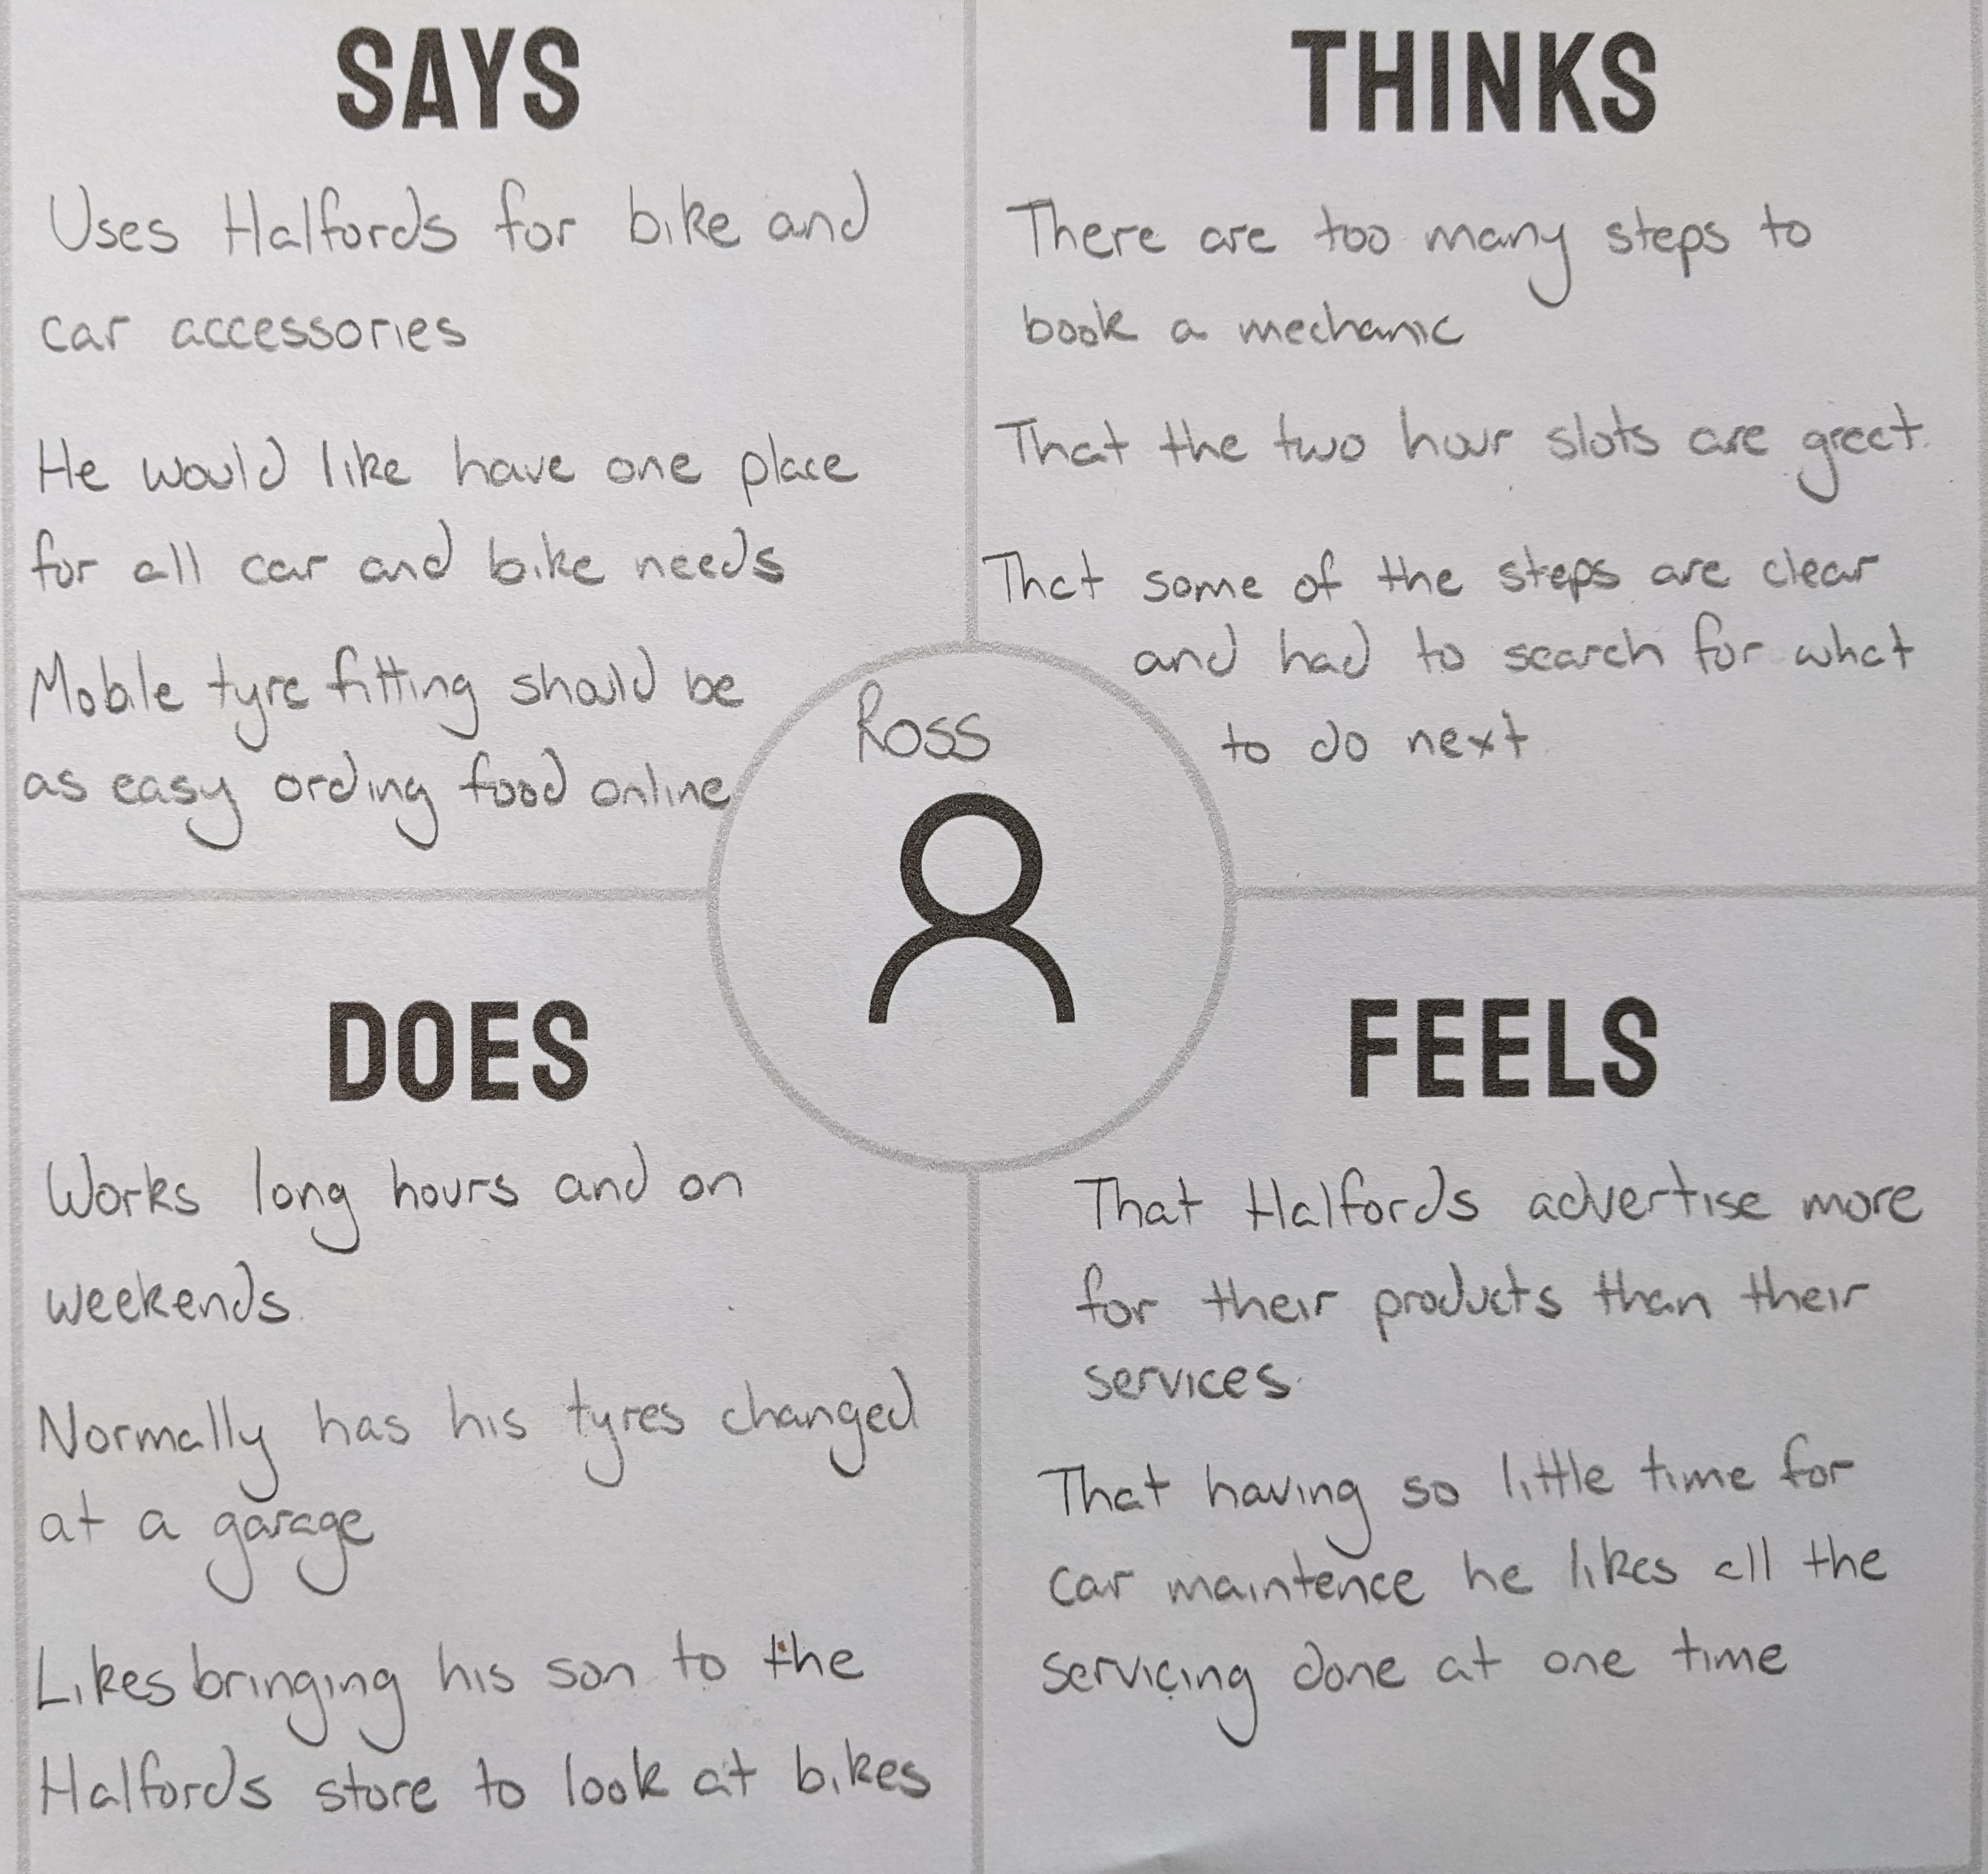 SAYS
Uses Halfords for bike and
car accessories
He would like have one place
for all car and bike needs
Mobile tyre fitting should be
as easy ording food online
THINKS
There are too many steps to
book a mechanic
That the two hour slots are great.
That some of the steps are clear
and had to search for what
to do next
Ross
DOES
Works long hours and on
weekends.
Normally has his tyres changed
at a garage
Likes bringing his son to the
Halfords store to look at bikes
FEELS
That Halfords advertise more
for their products than their
services.
That having so little time for
car maintence he likes all the
servicing done at one time